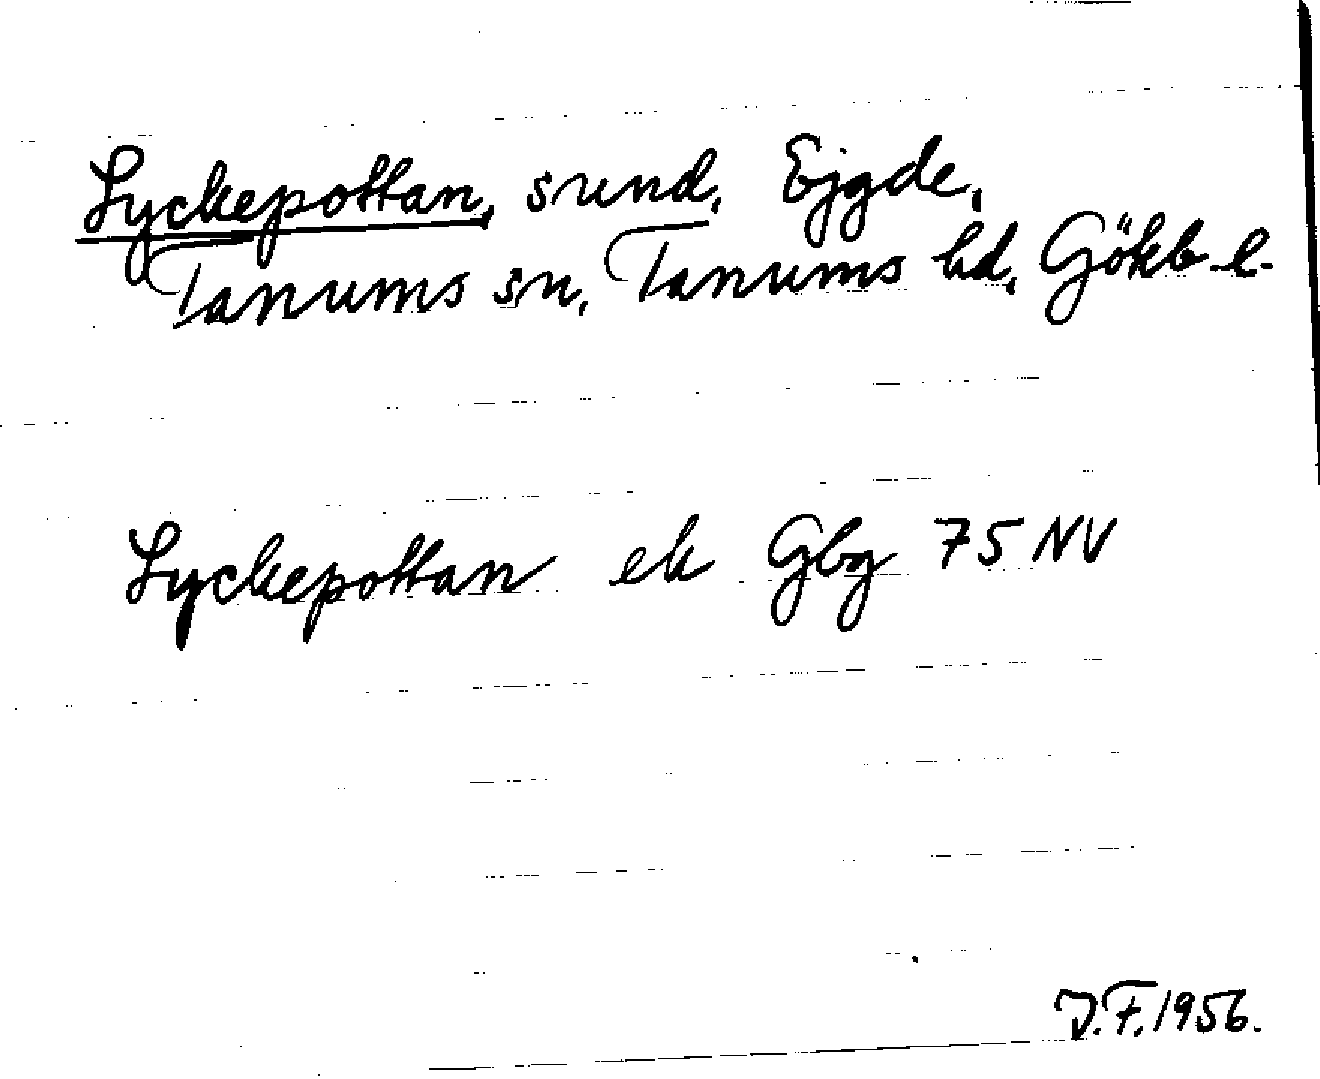 Lyckepottan, sund, Ejgde,
Tanums sn, Tanums hd, Gökb. l.
Lyckepottan ek Gbg 75 NV
J.F. 1956.